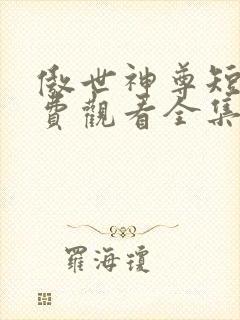 傲世神尊短
費觀看全集
羅海瓊